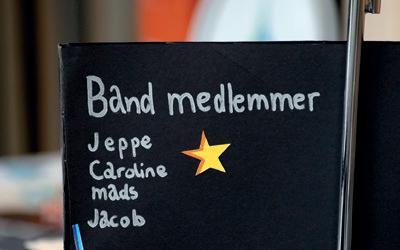 Band medlemmer
Jeppe
Caroline
mads
Jacob